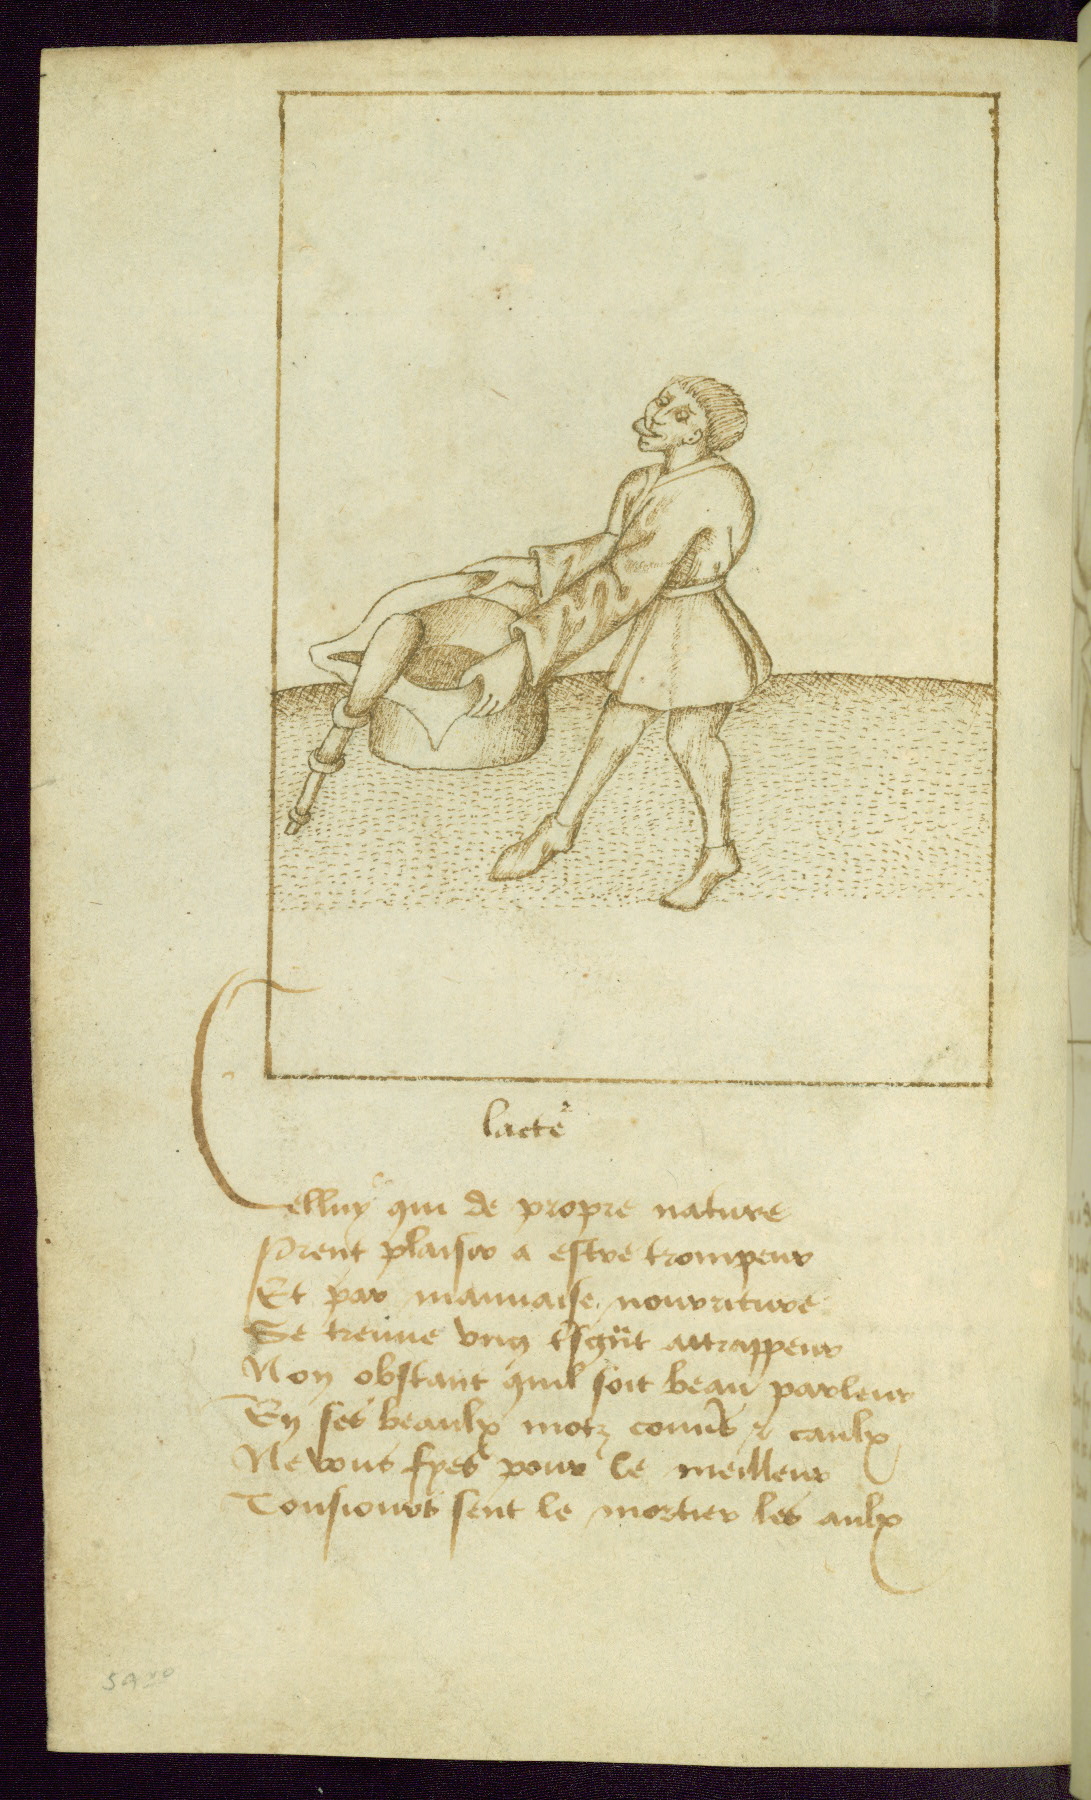 lacte
Celluy qui de propre nature
Prent plaisir a estre trompeur
Et par mauuaise nourriture
Se treuue vng attrappeur
Non obstant quil soit beau parleur
En ses beaulx motz couuers & caulx
Ne vous fyes pour le meilleur
Tousiours sent le mortier les aulx
59 vo